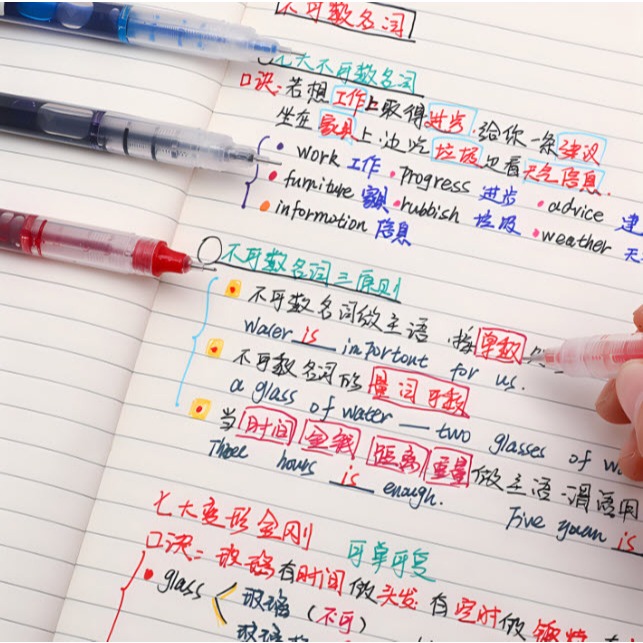 不可数名词
七大不可数名词
口诀:若想工作上取得进步,给你一条建议
坐在家具上边吃垃圾边看天气信息.
• work 工作 • progress 进步 • advice 建
• furniture 家具 • rubbish 垃圾 • weather 天
• information 信息
不可数名词三原则
• 不可数名词做主语,接单数
Water is important for us.
• 不可数名词的量词可数
a glass of water — two glasses of w
• 当时间 金钱 距离 重量做主语,谓语用
Three hours is enough. Five yuan is
七大变形金刚 可单可复
口诀:玻璃有时间做头发,有空时做
• glass < 玻璃(不可)
玻璃